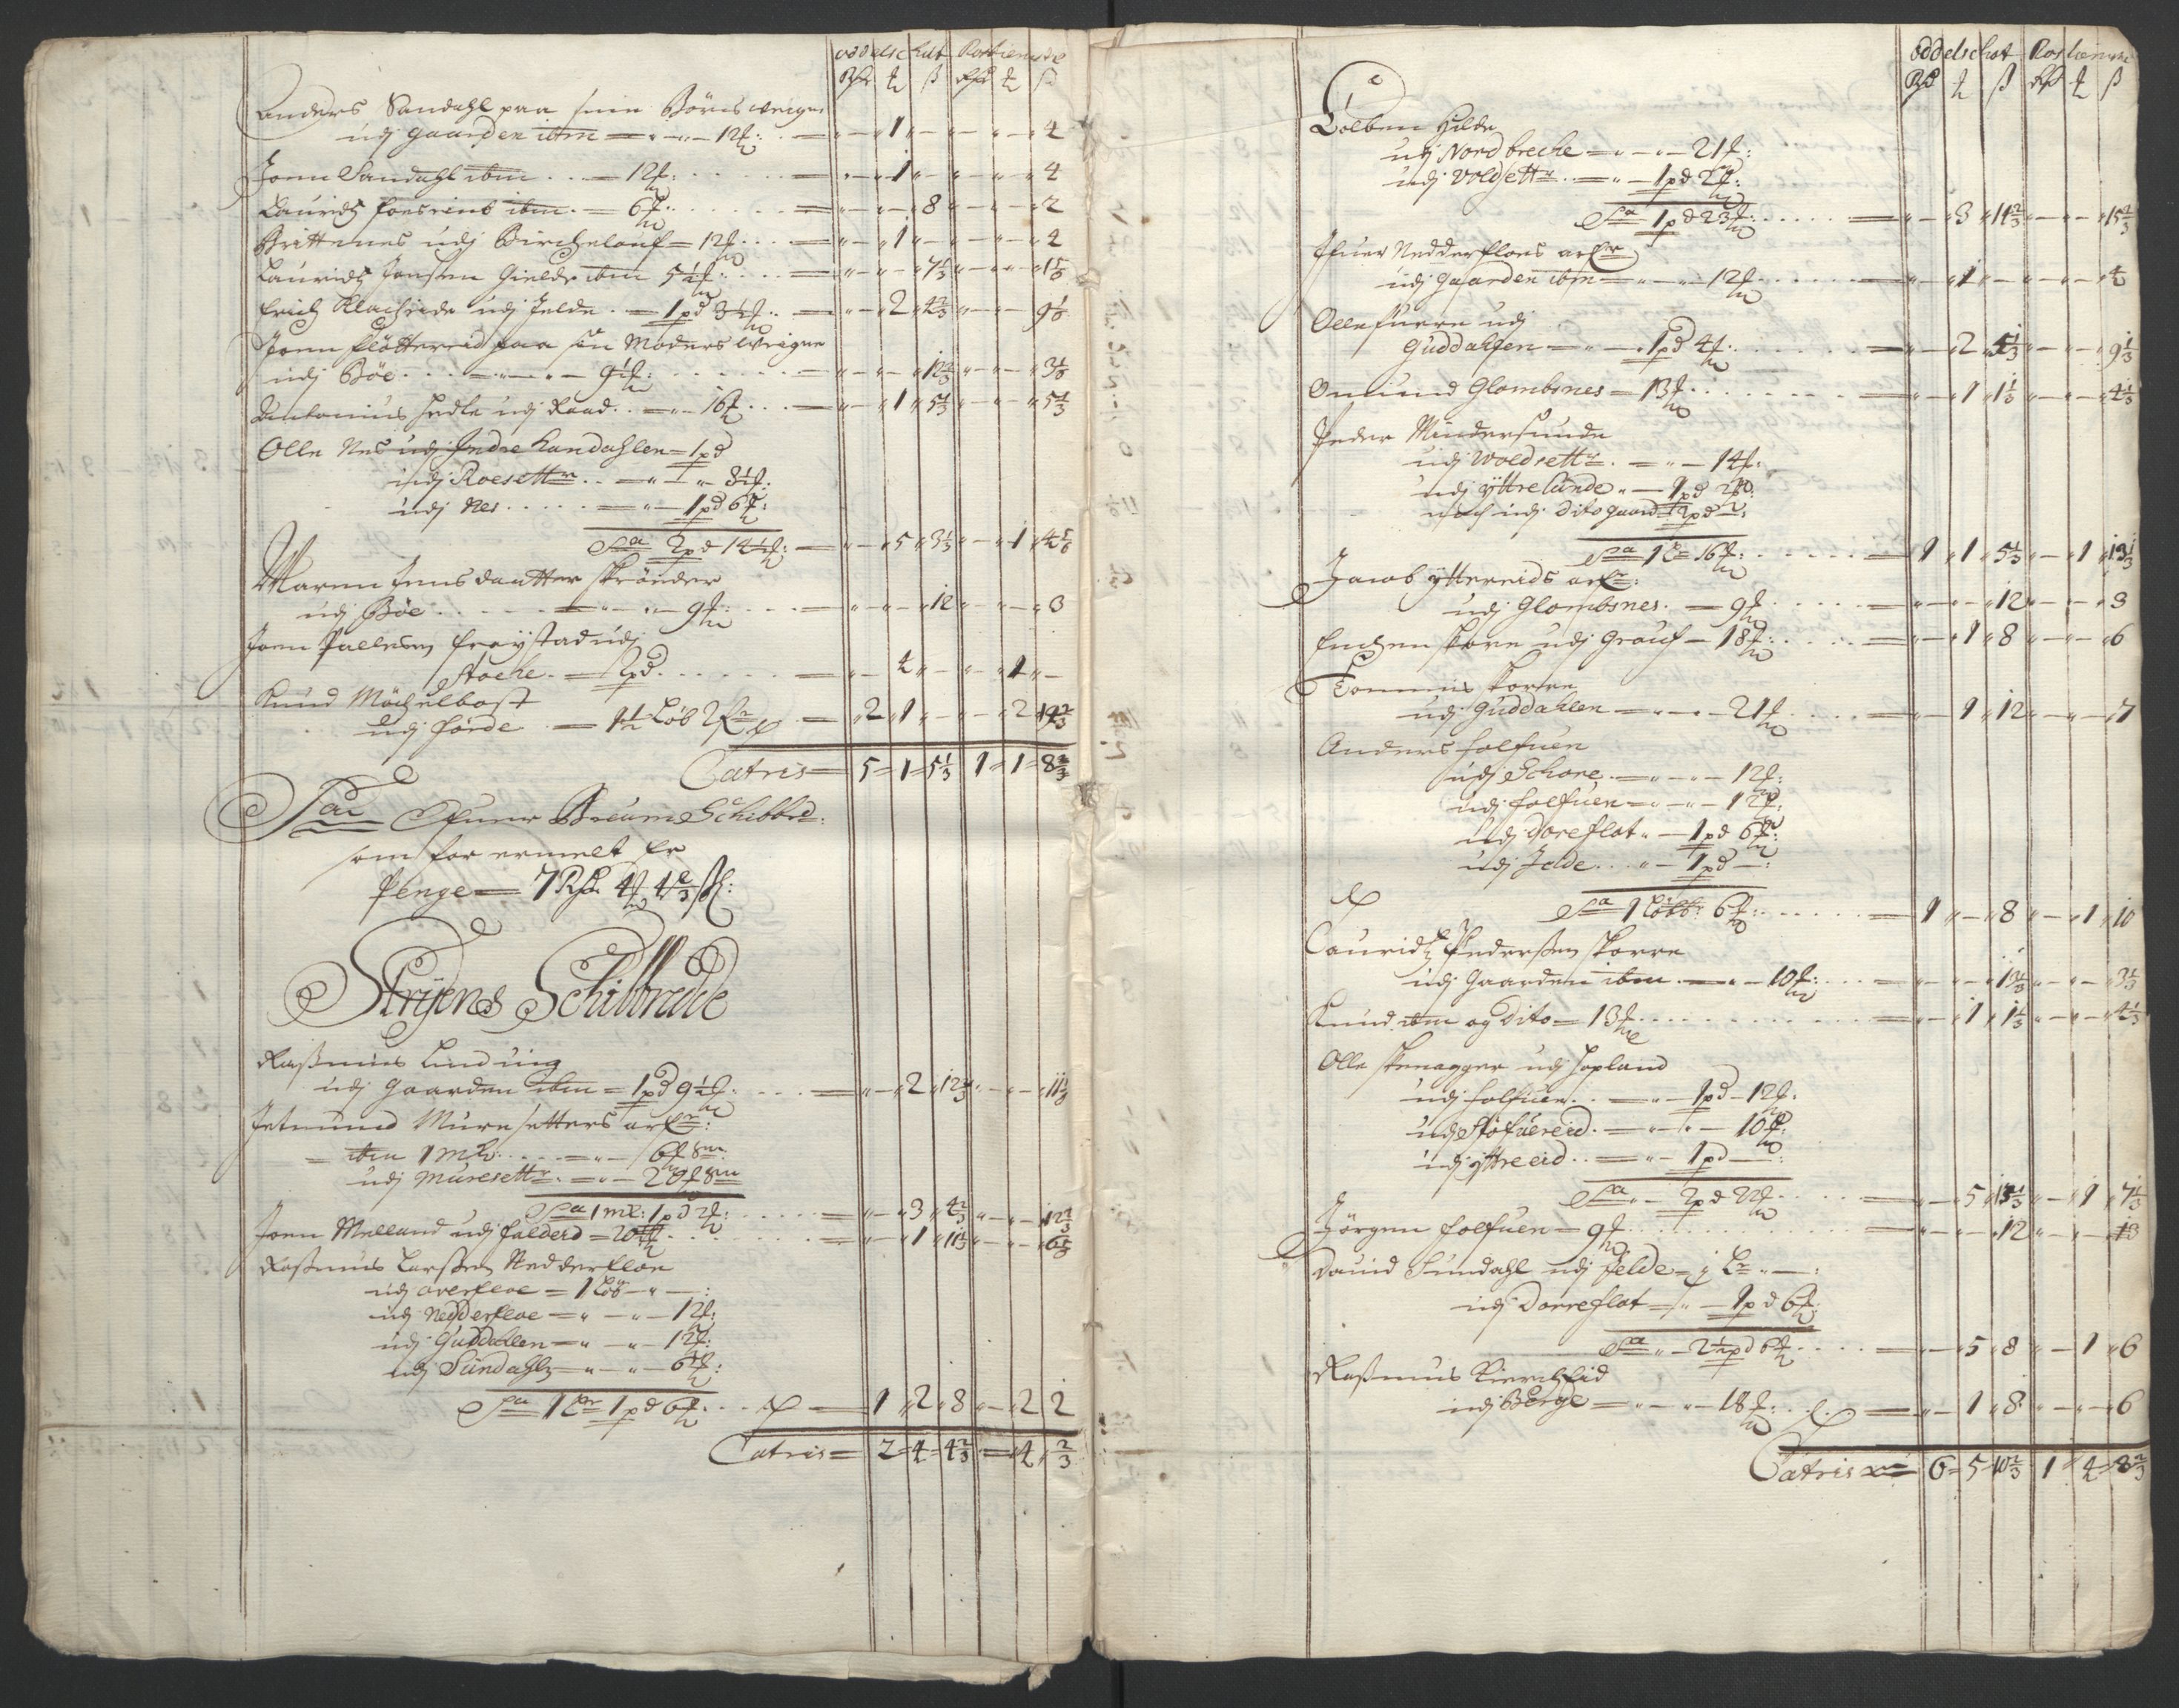 oddelschat Rostieniste
Rdr ℔ ß Rdr ℔ ß
Anders Sandahl paa sinn Börns weigne
udj gaarden ibm = " - " - 12 ℔ : = " - " 1 " - " - " - " 4
Joen Sandahl ibm . . = 12 ℔ : = " - " 1 " - " - " - " 4
Lauridz ibm . = 6 ℔ : = " - " - " 8 " - " - " 2
Brittenes udj Birchelouf = 12 ℔ . . = " - " 1 " - " - " - " 4
Lauridz Jonsen Gielde ibm 5½ ℔ : = " - " - " 7⅓ " - " - " 1⅚
Erich Klachride udj Jelde . = 1 pd 3½ ℔ . . = " - " 2 " 4⅔ " - " - " 9⅙
Joen Flöttereid paa sin Moders weigne
udj Böe . . . = " - " - 9½ ℔ : = " - " - " 12⅔ " - " - " 3⅙
Antonius Hedle udj Raad . . = " - 16 ℔ . . = " - " 1 " 5⅓ " - " - " 5⅓
Olle Nes udj Indre Landahlen = 1 pd
udj Roesettr . . = " - " - 8½ ℔ :
udj Nes . . . . = " - 1 pd 6 ℔ :
Sa 2 pd 14½ ℔ : = " - " 5 " 3⅓ " - " 1 " 4⅚
Maren Jens daatter Skrönder
udj Böe . . . . = " - " - 9 ℔ : = " - " - " 12 " - " - " 3
Joen Pallesen Fröystad udj
Stoche . = 2 pd . . . . = " - 4 " - " - " 1 " -
Knud Möchelbost
udj Förde . = 1½ Löb 2 = " 2 " 1 " - " - " 2 14⅔
Latris = 5 = 1 = 5⅓ 1 = 1 = 8⅔
Sa Ofuer Breum Schibbrd :
som for ermelt Er
Penge = 7 Rdr 4 ℔ 4⅔ ß :
Stryens Schibbredde
Rasmus Lunduig
udj gaarden ibm = 1 pd 9½ ℔ : = " - " 2 " 12⅔ " - " - " 11⅓
Jetmund Muresetters arf :
= ibm 1 ml : . . . = " - 6 ℔ 8 m
udj Muresettr . = " - 20 ℔ 8 m
Sa 1 ml : 1 pd 2 ℔ : = " - " 3 " 4⅔ " - " - " 12⅔
Joen Melland udj Falderd = 20½ ℔ . = " - " 1 " 11⅓ " - " - " 6⅚
Rasmus Larssen Nedderfloe
udj overfloe = 1 Löb - " - :
udj Nedderfloe = " - " - 12 ℔ :
udj Guddahlen = " - " - 12 ℔ :
udj Sundahl = " - " - 6 ℔ :
Sa 1 Lr 1 pd 6 ℔ : . . = 1 " 2 " 8 " - " 2 2
Latris = 2 = 4 = 4⅔ = " 4 " ⅔
oddelschat Rostieniste
Rdr ℔ ß Rdr ℔ ß
Colben Hilde
udj Nordbreche = " - " - 21 ℔ :
udj Voldsettr . . = " - 1 pd 2 ℔ :
Sa 1 pd 23 ℔ : . . . = " - " 3 " 14⅔ " - " - " 15⅔
Ifuer Nedderfloes arf
udj gaarden ibm = " - " - 12 ℔ = " - " 1 " - " - " - " 4
Olle fuere udj
Guddahlen = " - 1 pd 4 ℔ . . . = " - " 2 " 5⅓ " - " - " 9⅓
Omund Glombsnes = 13 ℔ . . . = " - " 1 " 1⅓ " - " - " 4⅓
Peder Mindersunde
udj Woldsettr . = " - 14 ℔ :
udj yttre Sunde " - 1 pd 2 ℔ :
noch udj dito gaard 2 pd - :
Sa 1 L 16 ℔ : . . . = 1 " 1 " 5⅓ " - " 1 " 13⅓
Jacob yttereids arf :
udj Glombsnes . = 9 ℔ . . . = " - " - " 12 " - " - " 3
udj Grouf = 18 ℔ : . . = " - " 1 " 8 " - " - " 6
Tommis Skorre
udj Guddahlen = " - " - 21 ℔ . . = " - 1 " 12 " - " - " 7
Anders Folfuen
udj Schore . = " - " - 12 ℔ :
udj Folfuen = " - " - 12 ℔ :
udj Doreflot " - 1 pd 6 ℔ :
udj Jelde . . . " - 1 pd - :
Sa 1 Löbb 6 ℔ : . . . = 1 " - " 8 " - " 1 " 10
Lauridz Pederssen Skorre
udj Gaarden ibm . = " - 10 ℔ : . . = " - " - " 13⅓ " - " - " 3⅓
Knud ibm og dito = 13 ℔ . . . = " - " 1 " 1⅓ " - " - " 4⅓
Olle Skenagger udj Hopland
udj Folfuen . . = " - 1 pd - 12 ℔ :
udj Skofuereid . = " - " - 10 ℔ :
udj yttre eid . . = " - 1 pd - :
Sa " - 2 pd 22 ℔ . . . = " - " 5 " 13⅓ " - " 1 " 7⅓
Jörgen Folfuen = 9 ℔ . . . = " - " - " 12 " - " - " 3
David Sundahl udj Jelde = ½ Lr " - :
udj Dorreflot = " - 1 pd 6 ℔ :
Sa " - 2½ pd 6 ℔ . . . = " - " 5 " 8 " - 1 " 6
Rasmus KierchEid
udj Berge = " - " - 18 ℔ : . . = " - 1 " 8 " - " - " 6
Latris = 6 = 5 = 10⅔ 1 " 4 " 8⅔